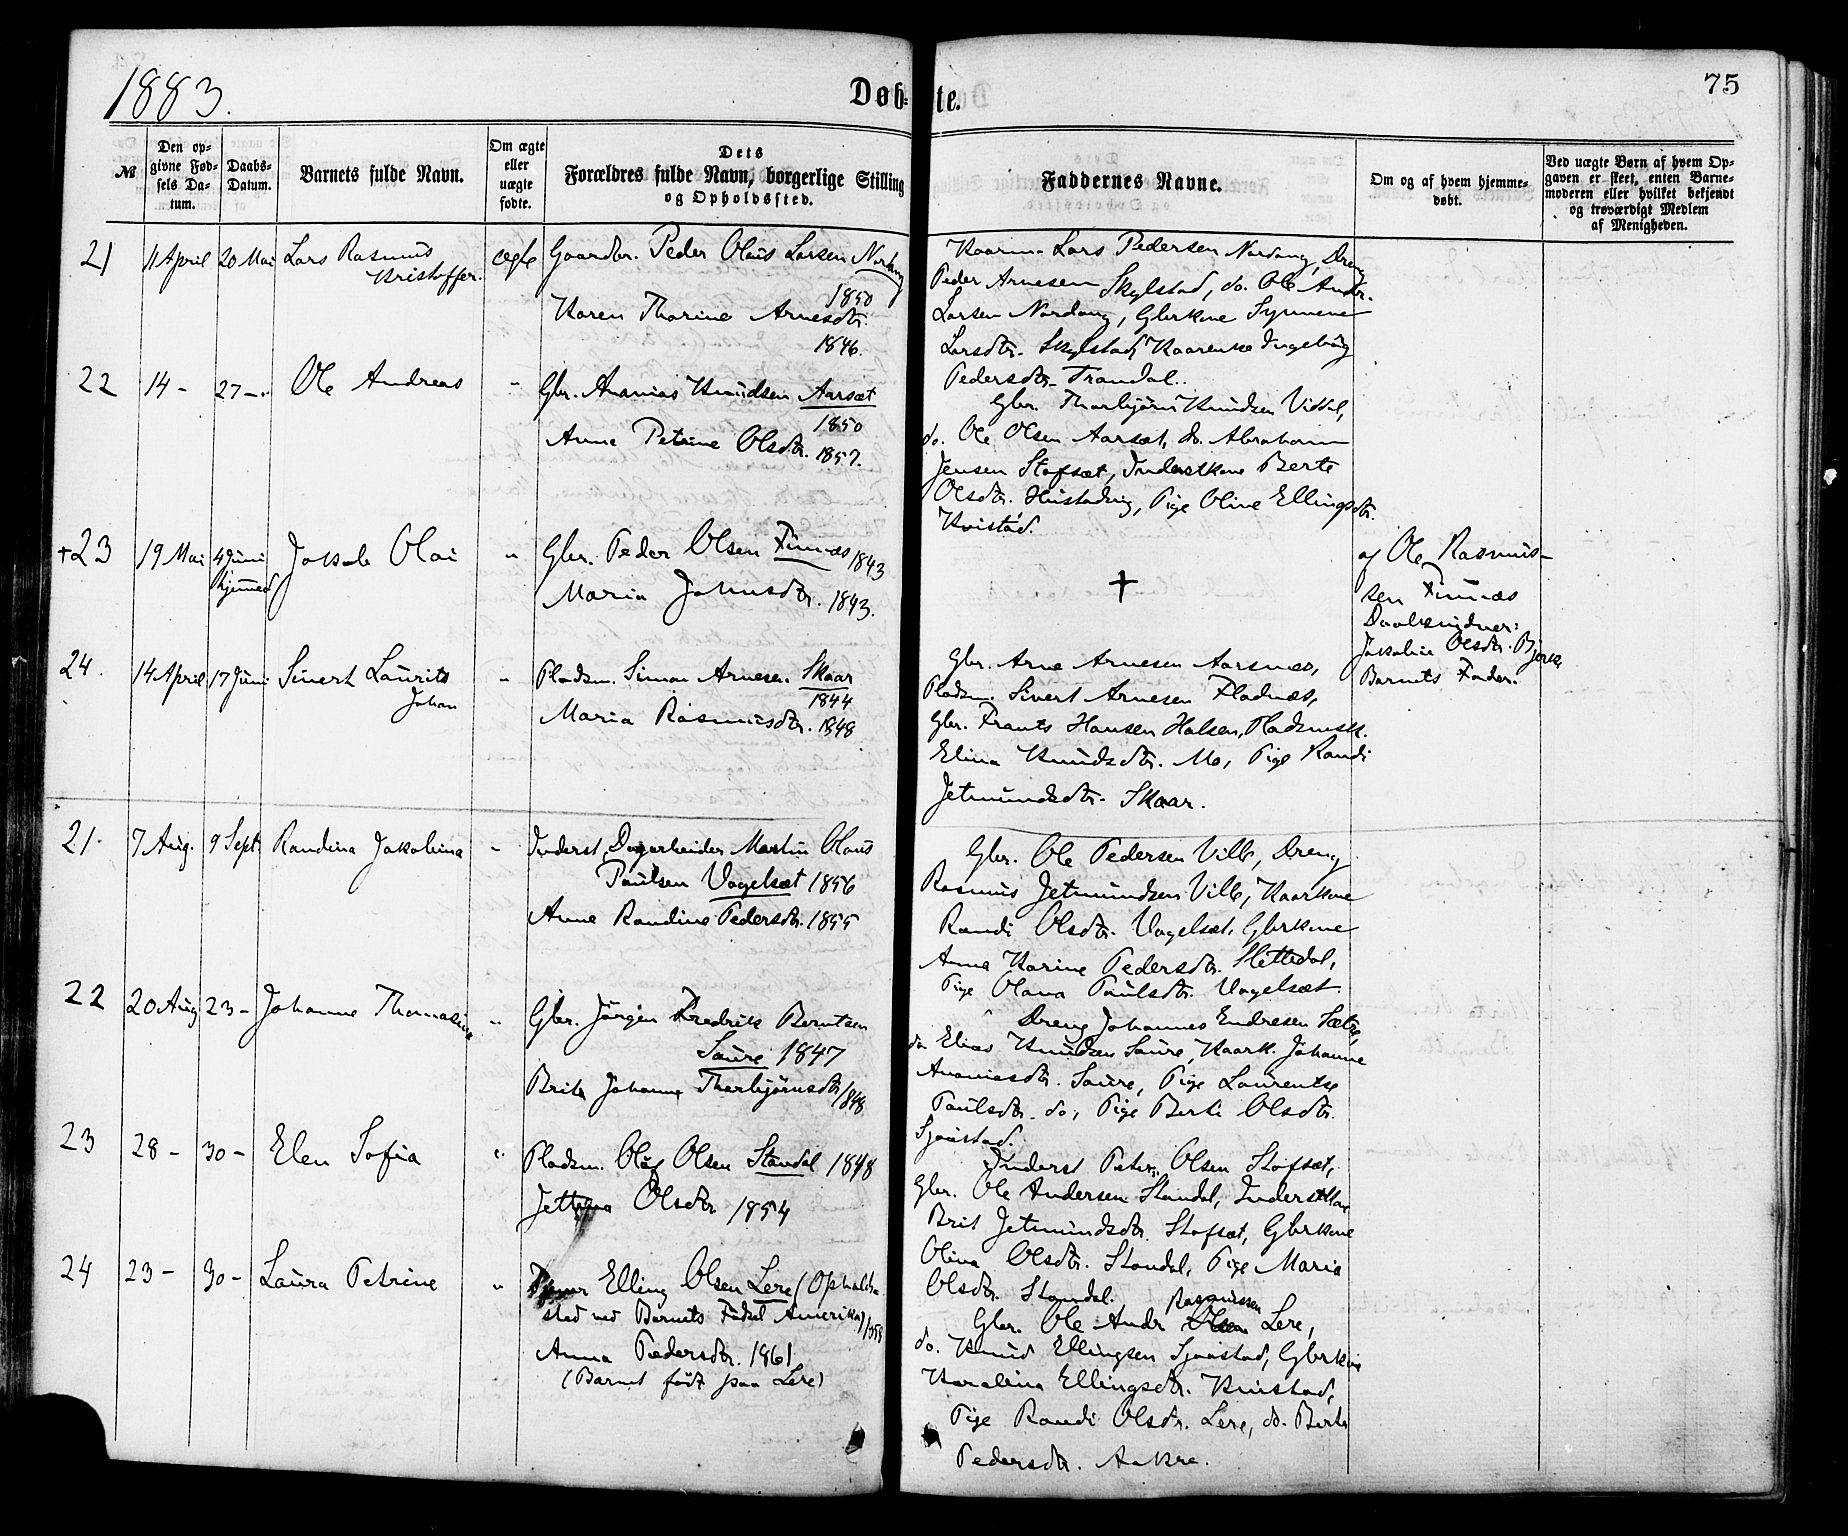 1883.
Døb-
te.
75
№
Den op-
givne Fød-
sels Da-
tum.
Daabs-
Datum.
Barnets fulde Navn.
Om ægte
eller
uægte
fødte.
Dets
Forældres fulde Navn, borgerlige Stilling
og Opholdssted.
Faddernes Navne.
Om og af hvem hjemme-
døbt.
Ved uægte Børn af hvem Op-
gaven er skeet, enten Barne-
moderen eller hvilket bekjendt
og troværdigt Medlem
af Menigheden.
21
11 April
20 Mai
Lars Rasmus
Kristoffer.
ægte
Gaardbr. Peder Olaus Larsen Nordang
1850
Karen Tharine Arnesdtr.
1846.
Kaarm. Lars Pedersen Nordang, Dreng
Peder Arnesen Skylstad, do. Ole Andr.
Larsen Nordang, Gbrkone Synneve
Larsdtr. Skylstad, Kaarenke Ingeborg
Pedersdtr. Trandal.
22
14 -
27 -
Ole Andreas
"
Gbr. Ananias Knudsen Aarsæt
1850
Anne Petrine Olsdtr. 1857.
Gbr. Thorbjörn Knudsen
do. Ole Olsen Aarsæt, do. Abraham
Jensen Stofsæt, Inderstkone Berte
Olsdtr. Hustadvig, Pige Oline Ellingsdtr.
Kvistad.
+23
19 Mai
4 Juni
hjemmed
Jakob Olai
"
Gbr. Peder Olsen Finnæs 1843
Maria Johnsdtr. 1843.
+
af Ole Rasmus-
sen Finnæs
Daabsvidner:
Jakobine Olsdtr. Bjerke,
Barnets Fader.
24.
14 April
17 Juni
Sivert Laurits
Johan
"
Pladsm. Simon Arnesen Skaar
1844
Maria Rasmusdtr. 1848
Gbr. Arne Arnesen Aarsnes,
Pladsm. Sivert Arnesen Fladnæs,
Gbr. Frants Hansen Halsen, Pladsmsk.
Elina Knudsdtr. Mo, Pige Randi
Jetmundsdtr. Skaar.
21.
7 Aug.
9 Sept.
Randina Jakobina
"
Inderst, Dagarbeider Martin Olaus
Paulsen Vagelsæt 1856
Anne Randine Pedersdtr. 1855
Gbr. Ole Pedersen Ville, Dreng
Rasmus Jetmundsen Ville, Kaarkone
Randi Olsdtr. Vagelsæt, Gbrkone
Anne Karine Pedersdtr. Slettedal,
Pige Olava Paulsdtr. Vagelsæt.
22
20 Aug
23 -
Johanne Thomasine
"
Gbr. Jörgen Fredrik Berntsen
Saure 1847
Brite Johanne Thorbjörnsdtr 1848
Dreng Johannes Endresen Sætre,
do Elias Knudsen Saure, Kaark. Johanne
Ananiasdtr. Saure, Pige Laurentse
Paulsdtr. do, Pige Berte Olsdtr.
Sjaastad.
23
28 -
30 -
Elen Sofia
"
Pladsm. Olaf Olsen Standal 1848
Olsdtr 1854
Inderst Peter Olsen Stofsæt,
Gbr. Ole Andersen Standal, Inderstkone
Brit Jetmundsdtr. Stofsæt, Gbrkone
Olina Olsdtr. Standal, Pige Maria
Olsdtr. Standal.
24
23 -
30 -
Laura Petrine
"
Elling Olsen Lere (Opholds-
sted ved Barnets Födsel Amerika) 1858
Anna Pedersdtr. 1861
(Barnet födt paa Lere)
Rasmussen
Gbr. Ole Andr Olsen Lere,
do. Knud Ellingsen Sjaastad, Gbrkone
Karalina Ellingsdtr. Kvistad,
Pige Randi Olsdtr. Lere, do. Berte
Pedersdtr. Aakre.